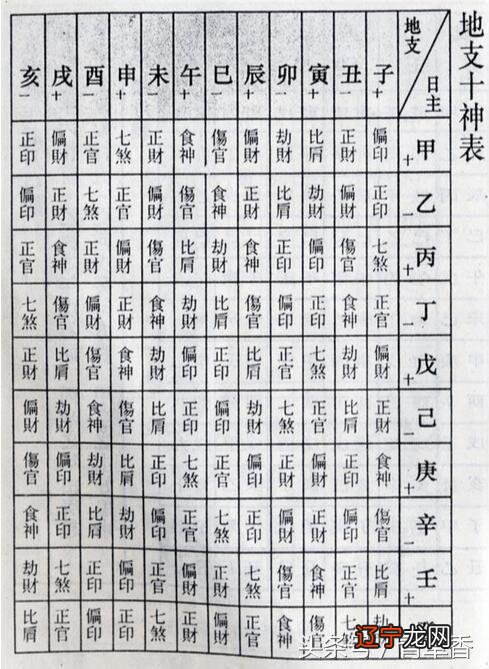 地支十神表
日主 地支 子+ 丑- 寅+ 卯- 辰+ 巳- 午+ 未- 申+ 酉- 戌+ 亥-
甲+ 偏印 正財 比肩 劫財 偏財 傷官 食神 正財 七煞 正官 偏財 正印
乙- 正印 偏財 劫財 比肩 正財 食神 傷官 偏財 正官 七煞 正財 偏印
丙+ 七煞 傷官 偏印 正印 食神 劫財 比肩 傷官 偏財 正財 食神 正官
丁- 正官 食神 正印 偏印 傷官 比肩 劫財 食神 正財 偏財 傷官 七煞
戊+ 偏財 劫財 七煞 正官 比肩 正印 偏印 劫財 食神 傷官 比肩 正財
己- 正財 比肩 正官 七煞 劫財 偏印 正印 比肩 傷官 食神 劫財 偏財
庚+ 食神 正印 偏財 正財 偏印 正官 七煞 正印 比肩 劫財 偏印 傷官
辛- 傷官 偏印 正財 偏財 正印 七煞 正官 偏印 劫財 比肩 正印 食神
壬+ 比肩 正官 食神 傷官 七煞 正財 偏財 正官 偏印 正印 七煞 劫財
傷官 食神 正官 偏財 正財 七煞 正印 偏印 正官 比肩
辽宁龙网